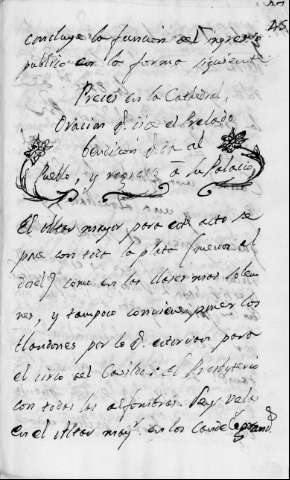 45
concluye la funcion del Ingreso
publico en la forma siguiente
Preces en la Cathedral,
Oracion q. dice el Prelado
bendicion q. da al
Pueblo, y regreso á su Palacio
El Altar mayor para este acto se
pone con toda la plata (menos el
dosel) como en las clases mas solem
nes, y tampoco conviene poner los
blandones por lo q. estorvan para
el circo del Cavildo: el Presbyterio
con todas las alfombras. Seys velas
en el Altar may.r en los Cande